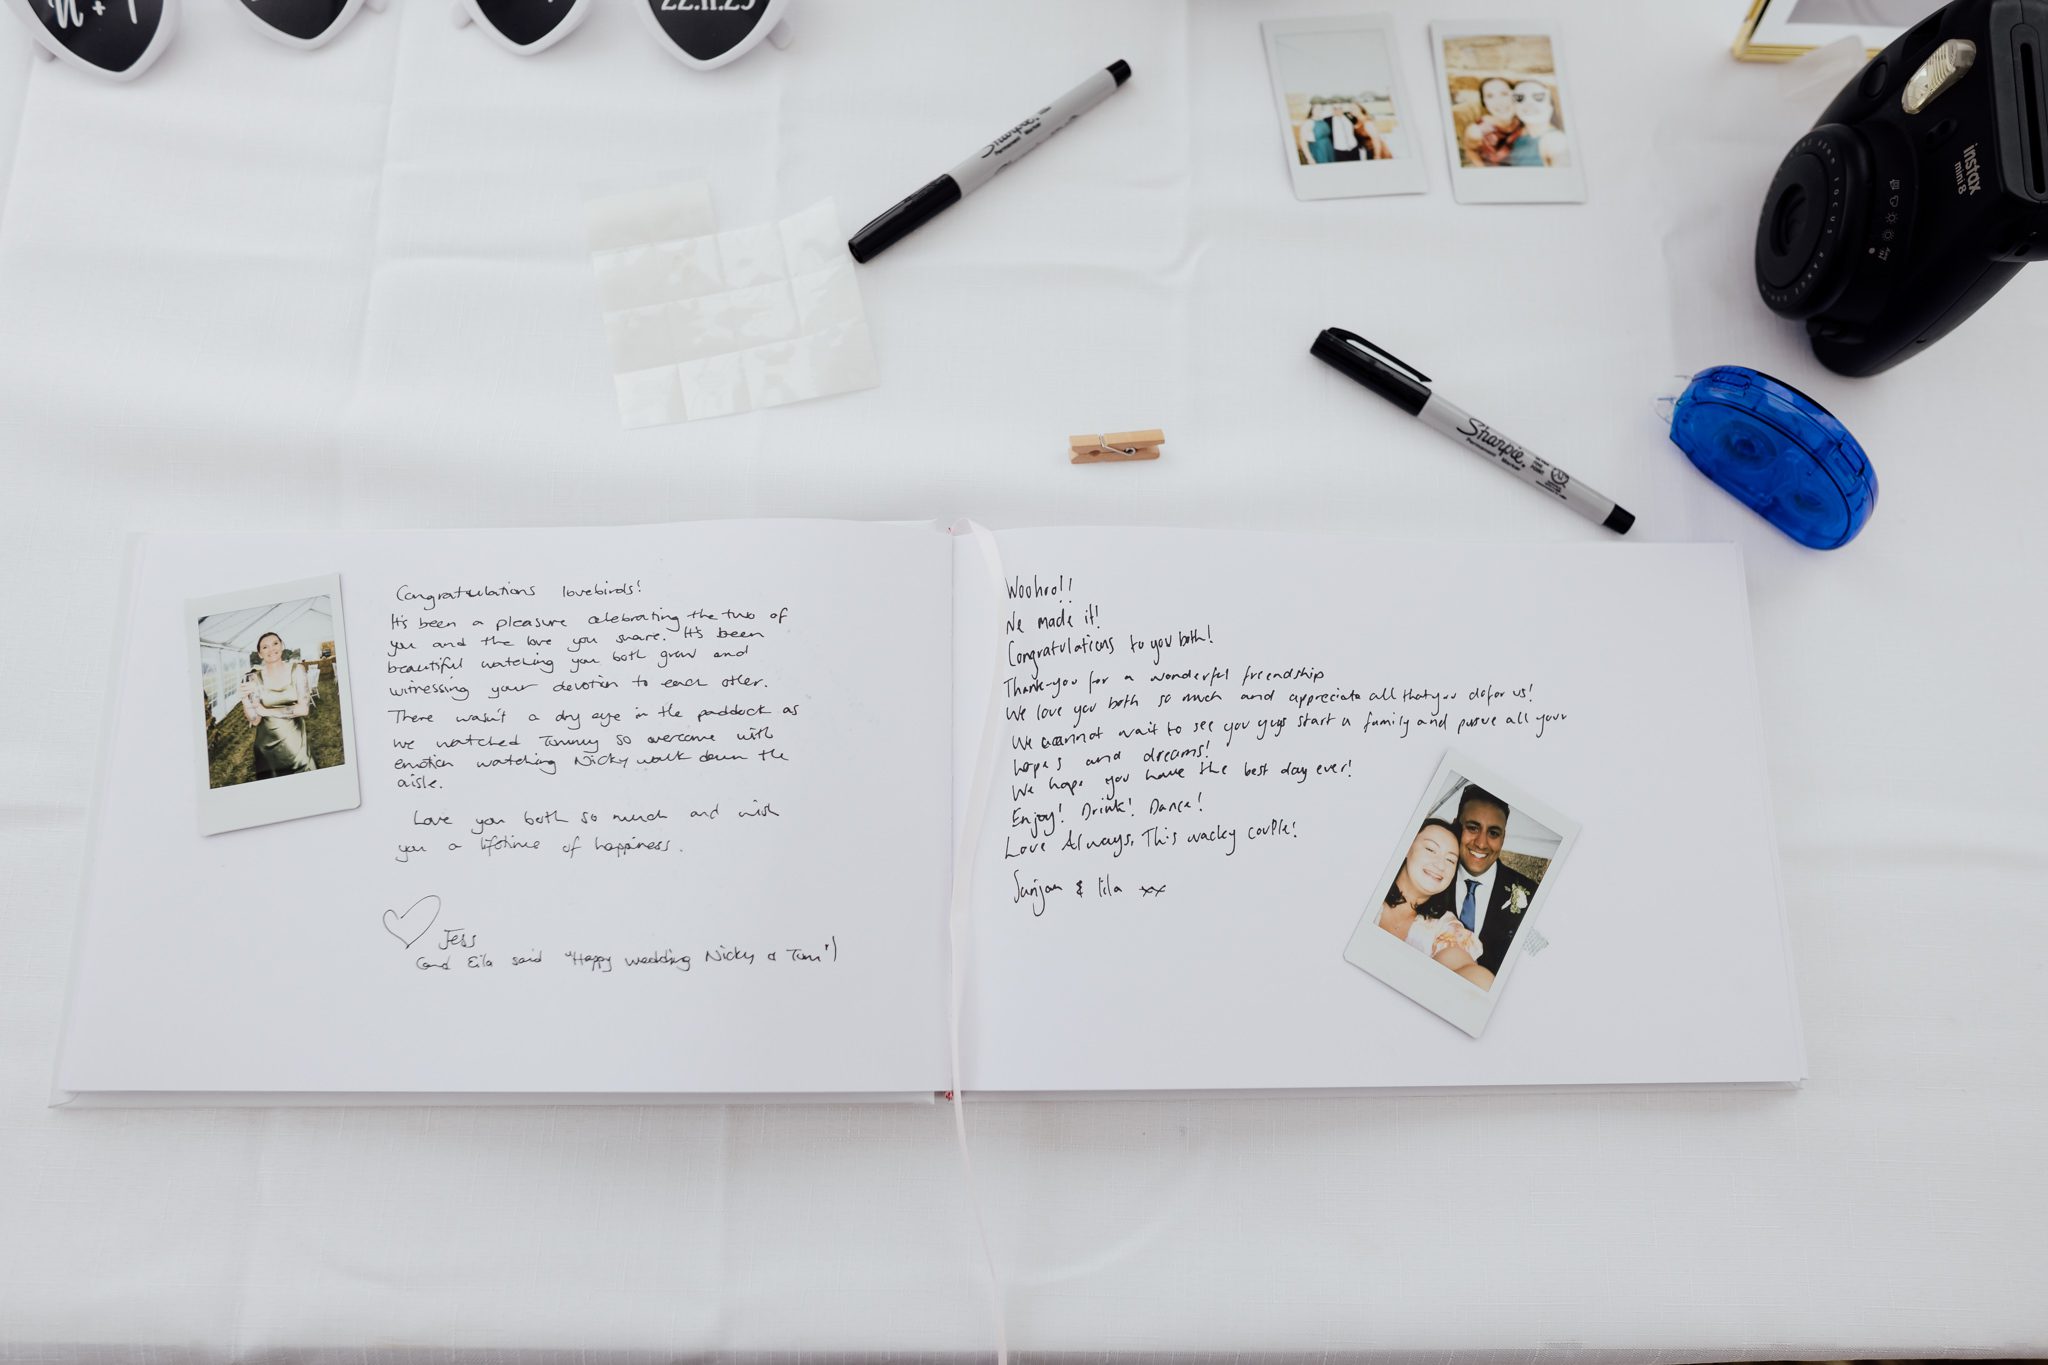 N + T
22.11.25
Sharpie
Permanent Marker
instax
mini 8
Sharpie
Permanent Marker
Congratulations lovebirds!
It's been a pleasure celebrating the two of
you and the love you share. It's been
beautiful watching you both grow and
witnessing your devotion to each other.
There wasn't a dry eye in the paddock as
we watched Tommy so overcome with
emotion watching Nicky walk down the
aisle.
Love you both so much and wish
you a lifetime of happiness.
Jess
(and Eila said "Happy wedding Nicky & Tom")
Woohro!!
We made it!
Congratulations to you both!
Thank-you for a wonderful friendship
We love you both so much and appreciate all that you do for us!
We cannot wait to see you guys start a family and pursue all your
hopes and dreams!
We hope you have the best day ever!
Enjoy! Drink! Dance!
Love Always, This wacky couple!
& lila xx